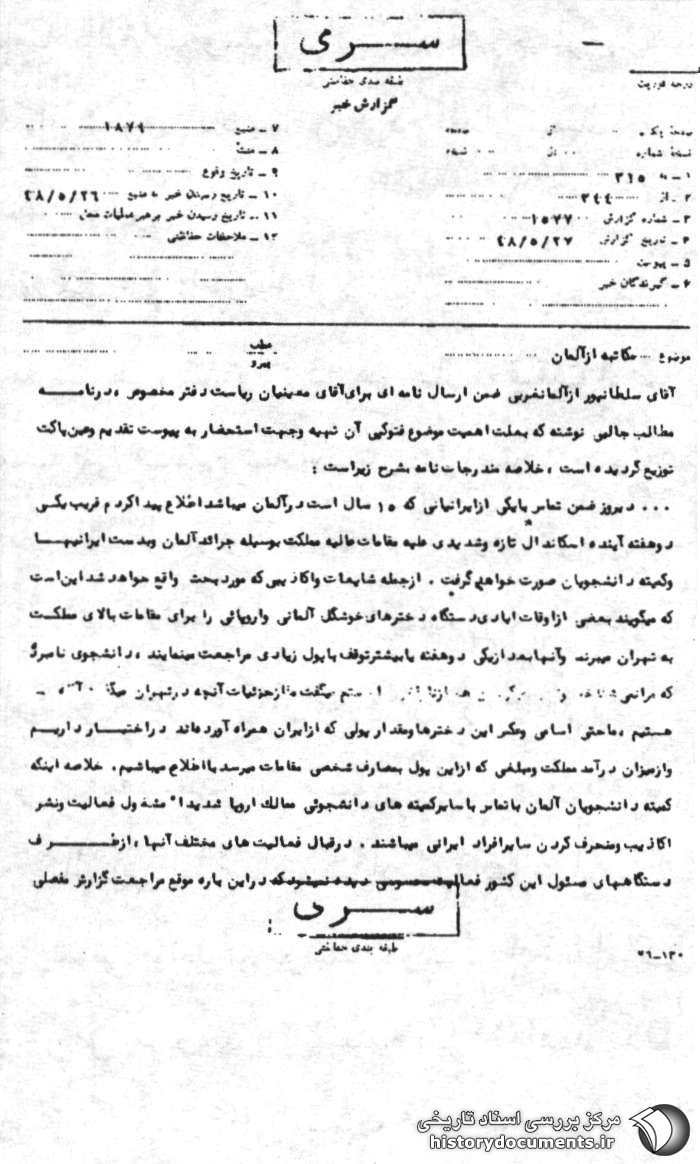 سری
طبقه بندی حفاظتی
گزارش خبر
درجه فوریت
۷ ـ منبع ۱۸۷۹
صفحه یک از صفحه
۸ ـ منشأ
نسخه شماره از نسخه
۹ ـ تاریخ وقوع
۱ ـ به ۳۱۵
۱۰ ـ تاریخ رسیدن خبر به منبع ۴۸/۵/۲۶
۲ ـ از ۳۴۴
۱۱ ـ تاریخ رسیدن خبر برهبر عملیات محل
۳ ـ شماره گزارش ۱۵۷۷
۱۲ ـ ملاحظات حفاظتی
۴ ـ تاریخ گزارش ۴۸/۵/۲۷
۵ ـ پیوست
۶ ـ گیرندگان خبر
موضوع مکاتبه ازآلمان
عطف
پیرو
آقای سلطانپور ازآلمانغربی ضمن ارسال نامه ای برای آقای معینیان ریاست دفتر مخصوص ، درنامه
مطالب جالبی نوشته که بعلت اهمیت موضوع فتوکپی آن تهیه وجهت استحضار به پیوست تقدیم وعین پاکت
توزیع گردیده است ، خلاصه مندرجات نامه بشرح زیراست :
... دیروز ضمن تماس بایکی ازایرانیانی که ۱۵ سال است درآلمان میباشد اطلاع پیدا کردم قریب یکی
دوهفته آینده اسکاندال تازه وشدیدی علیه مقامات عالیه مملکت بوسیله جرائد آلمان وبدست ایرانیها
وکمیته دانشجویان صورت خواهد گرفت . ازجمله شایعات واکاذیبی که مورد بحث واقع خواهد شد این است
که میگویند بعضی ازاوقات ایادی دستگاه دخترهای خوشگل آلمانی واروپائی را برای مقامات بالای مملکت
به تهران میبرند وآنها بعد ازیکی دوهفته یا بیشترتوقف با پول زیادی مراجعت مینمایند ، دانشجوی نامبرده
که مرانمی شناخت میگفت ماازجزئیات آنچه درتهران
هستیم ، ماحتی اسامی وعکس این دخترها ومقدار پولی که ازایران همراه آورده‌اند دراختیار داریم
وازمیزان درآمد مملکت ومبلغی که ازاین پول بمصارف شخصی مقامات میرسد بااطلاع میباشیم. خلاصه اینکه
کمیته دانشجویان آلمان باتماس با سایرکمیته های دانشجوئی ممالک اروپا شدیدا" مشغول فعالیت ونشر
اکاذیب ومنحرف کردن سایرافراد ایرانی میباشند . درقبال فعالیت های مختلف آنها ، ازطرف
دستگاههای مسئول این کشور فعالیت محسوسی دیده نمیشود که دراین باره موقع مراجعت گزارش مفصلی
سری
طبقه بندی حفاظتی
۷۶-۱۳۰
مرکز بررسی اسناد تاریخی
historydocuments.ir